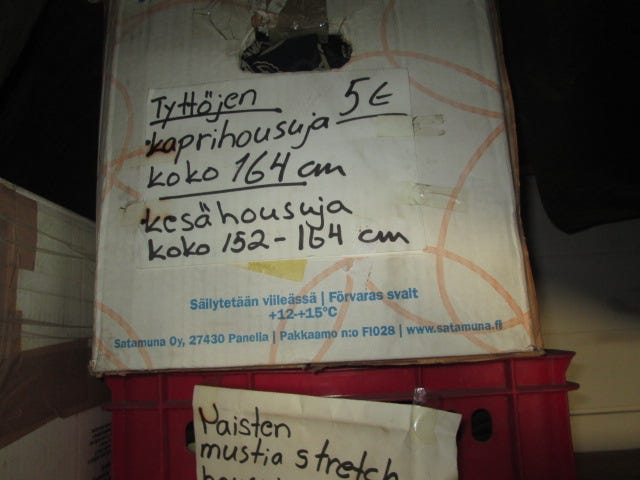 Tyttöjen 5€
•kaprihousuja
koko 164 cm
•kesähousuja
koko 152-164 cm
Säilytetään viileässä | Förvaras svalt
+12-+15°C
Satamuna Oy, 27430 Panelia | Pakkaamo n:o FI028 | www.satamuna.fi
Naisten
mustia stretch